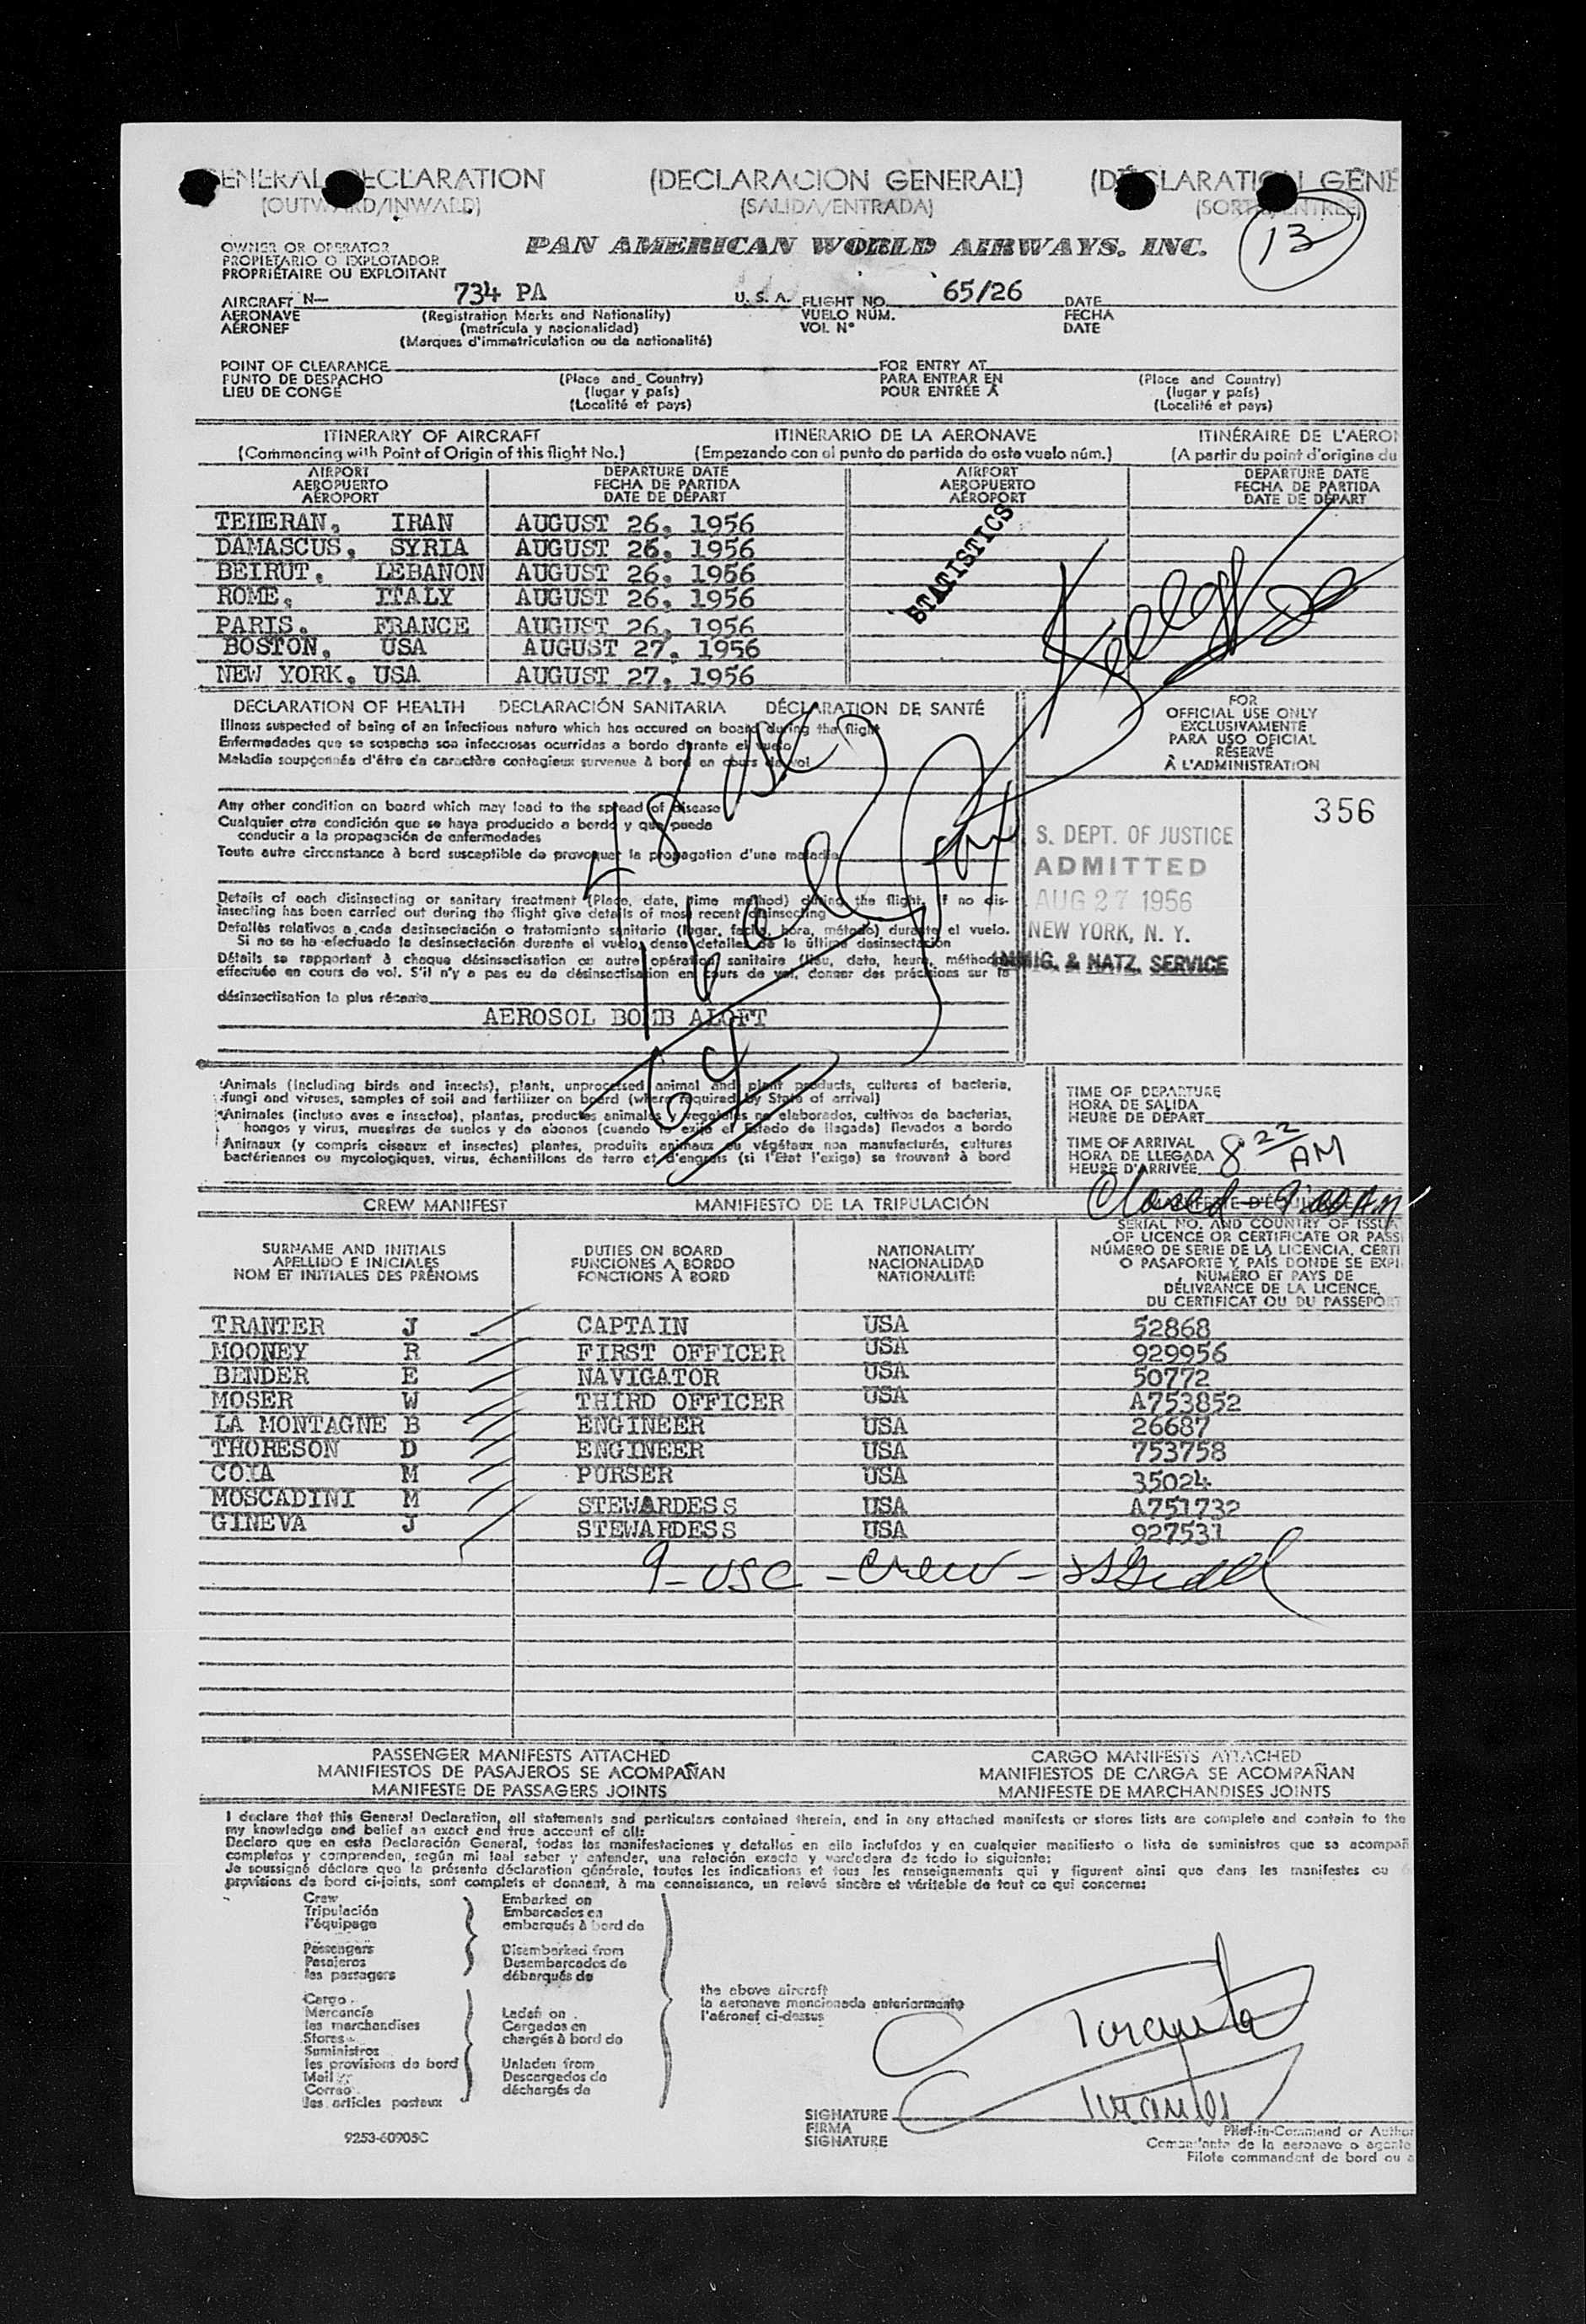 GENERAL DECLARATION (DECLARACION GENERAL) (DÉCLARATION GÉNÉ
(OUTWARD/INWARD) (SALIDA/ENTRADA) (SORTIE/ENTREE)
13
OWNER OR OPERATOR
PROPIETARIO O EXPLOTADOR
PROPRIÉTAIRE OU EXPLOITANT
PAN AMERICAN WORLD AIRWAYS, INC.
AIRCRAFT N— 734 PA U. S. A. FLIGHT NO. 65/26 DATE
AERONAVE (Registration Marks and Nationality) VUELO NÚM. FECHA
AÉRONEF (matrícula y nacionalidad) VOL Nº DATE
(Marques d'immatriculation ou de nationalité)
POINT OF CLEARANCE FOR ENTRY AT
PUNTO DE DESPACHO (Place and Country) PARA ENTRAR EN (Place and Country)
LIEU DE CONGÉ (lugar y país) POUR ENTRÉE À (lugar y país)
(Localité et pays) (Localité et pays)
ITINERARY OF AIRCRAFT ITINERARIO DE LA AERONAVE ITINÉRAIRE DE L'AÉRO
(Commencing with Point of Origin of this flight No.) (Empezando con el punto de partida de este vuelo núm.) (A partir du point d'origine du
AIRPORT DEPARTURE DATE AIRPORT DEPARTURE DATE
AEROPUERTO FECHA DE PARTIDA AEROPUERTO FECHA DE PARTIDA
AÉROPORT DATE DE DÉPART AÉROPORT DATE DE DÉPART
TEHERAN, IRAN AUGUST 26, 1956
DAMASCUS, SYRIA AUGUST 26, 1956
BEIRUT, LEBANON AUGUST 26, 1956
ROME, ITALY AUGUST 26, 1956
PARIS, FRANCE AUGUST 26, 1956
BOSTON, USA AUGUST 27, 1956
NEW YORK, USA AUGUST 27, 1956
STATISTICS
DECLARATION OF HEALTH DECLARACIÓN SANITARIA DÉCLARATION DE SANTÉ
Illness suspected of being of an infectious nature which has occured on board during the flight
Enfermedades que se sospecha son infecciosas ocurridas a bordo durante el vuelo
Maladie soupçonnée d'être de caractère contagieux survenue à bord en cours de vol
Any other condition on board which may lead to the spread of disease
Cualquier otra condición que se haya producido a bordo y que pueda
conducir a la propagación de enfermedades
Toute autre circonstance à bord susceptible de provoquer la propagation d'une maladie
Details of each disinsecting or sanitary treatment (Place, date, time method) during the flight. If no dis-
insecting has been carried out during the flight give details of most recent disinsecting
Detalles relativos a cada desinsectación o tratamiento sanitario (lugar, fecha, hora, método) durante el vuelo.
Si no se ha efectuado la desinsectación durante el vuelo, dense detalles de la última desinsectación
Détails se rapportant à chaque désinsectisation ou autre opération sanitaire (lieu, date, heure, méthode
effectuée en cours de vol. S'il n'y a pas eu de désinsectisation en cours de vol, donner des précisions sur la
désinsectisation la plus récente
AEROSOL BOMB ALOFT
48 USC
FOR
OFFICIAL USE ONLY
EXCLUSIVAMENTE
PARA USO OFICIAL
RÉSERVÉ
À L'ADMINISTRATION
356
S. DEPT. OF JUSTICE
ADMITTED
AUG 27 1956
NEW YORK, N. Y.
IMMIG. & NATZ. SERVICE
64
Animals (including birds and insects), plants, unprocessed animal and plant products, cultures of bacteria,
fungi and viruses, samples of soil and fertilizer on board (where required by State of arrival)
Animales (incluso aves e insectos), plantas, productos animales y vegetales no elaborados, cultivos de bacterias,
hongos y virus, muestras de suelos y de abonos (cuando lo exija el Estado de llegada) llevados a bordo
Animaux (y compris oiseaux et insectes) plantes, produits animaux ou végétaux non manufacturés, cultures
bactériennes ou mycologiques, virus, échantillons de terre et d'engrais (si l'Etat l'exige) se trouvant à bord
TIME OF DEPARTURE
HORA DE SALIDA
HEURE DE DÉPART
TIME OF ARRIVAL
HORA DE LLEGADA 8 22 AM
HEURE D'ARRIVÉE
CREW MANIFEST MANIFIESTO DE LA TRIPULACIÓN
SERIAL NO. AND COUNTRY OF ISSUA
SURNAME AND INITIALS DUTIES ON BOARD NATIONALITY OF LICENCE OR CERTIFICATE OR PASS
APELLIDO E INICIALES FUNCIONES A BORDO NACIONALIDAD NÚMERO DE SERIE DE LA LICENCIA, CERTI
NOM ET INITIALES DES PRÉNOMS FONCTIONS À BORD NATIONALITÉ O PASAPORTE Y PAIS DONDE SE EXPI
NUMÉRO ET PAYS DE
DÉLIVRANCE DE LA LICENCE,
DU CERTIFICAT OU DU PASSEPORT
TRANTER J CAPTAIN USA 52868
MOONEY R FIRST OFFICER USA 929956
BENDER E NAVIGATOR USA 50772
MOSER W THIRD OFFICER USA A753852
LA MONTAGNE B ENGINEER USA 26687
THORESON D ENGINEER USA 753758
COTA M PURSER USA 35024
MOSCADINI M STEWARDESS USA A751732
GINEVA J STEWARDESS USA 927531
9 - USC - Crew -
PASSENGER MANIFESTS ATTACHED CARGO MANIFESTS ATTACHED
MANIFIESTOS DE PASAJEROS SE ACOMPAÑAN MANIFIESTOS DE CARGA SE ACOMPAÑAN
MANIFESTE DE PASSAGERS JOINTS MANIFESTE DE MARCHANDISES JOINTS
I declare that this General Declaration, all statements and particulars contained therein, and in any attached manifests or stores lists are complete and contain to the
my knowledge and belief an exact and true account of all:
Declaro que en esta Declaración General, todas las manifestaciones y detalles en ella incluídos y en cualquier manifiesto o lista de suministros que se acompañ
completos y comprenden, según mi leal saber y entender, una relación exacta y verdadera de todo lo siguiente:
Je soussigné déclare que la présente déclaration générale, toutes les indications et tous les renseignements qui y figurent ainsi que dans les manifestes ou
provisions de bord ci-joints, sont complets et donnent, à ma connaissance, un relevé sincère et véritable de tout ce qui concerne:
Crew Embarked on
Tripulación Embarcados en
l'équipage embarqués à bord de
Passengers Disembarked from
Pasajeros Desembarcados de
les passagers débarqués de
Cargo
Mercancía Laden on
les marchandises Cargados en
Stores chargés à bord de
Suministros
les provisions de bord Unladen from
Mail Descargados de
Correo déchargés de
les articles postaux
the above aircraft
la aeronave mencionada anteriormente
l'aéronef ci-dessus
SIGNATURE
FIRMA
SIGNATURE
Pilot-in-Command or Author
Comandante de la aeronave o agente
Pilote commandant de bord ou a
9253-60905C